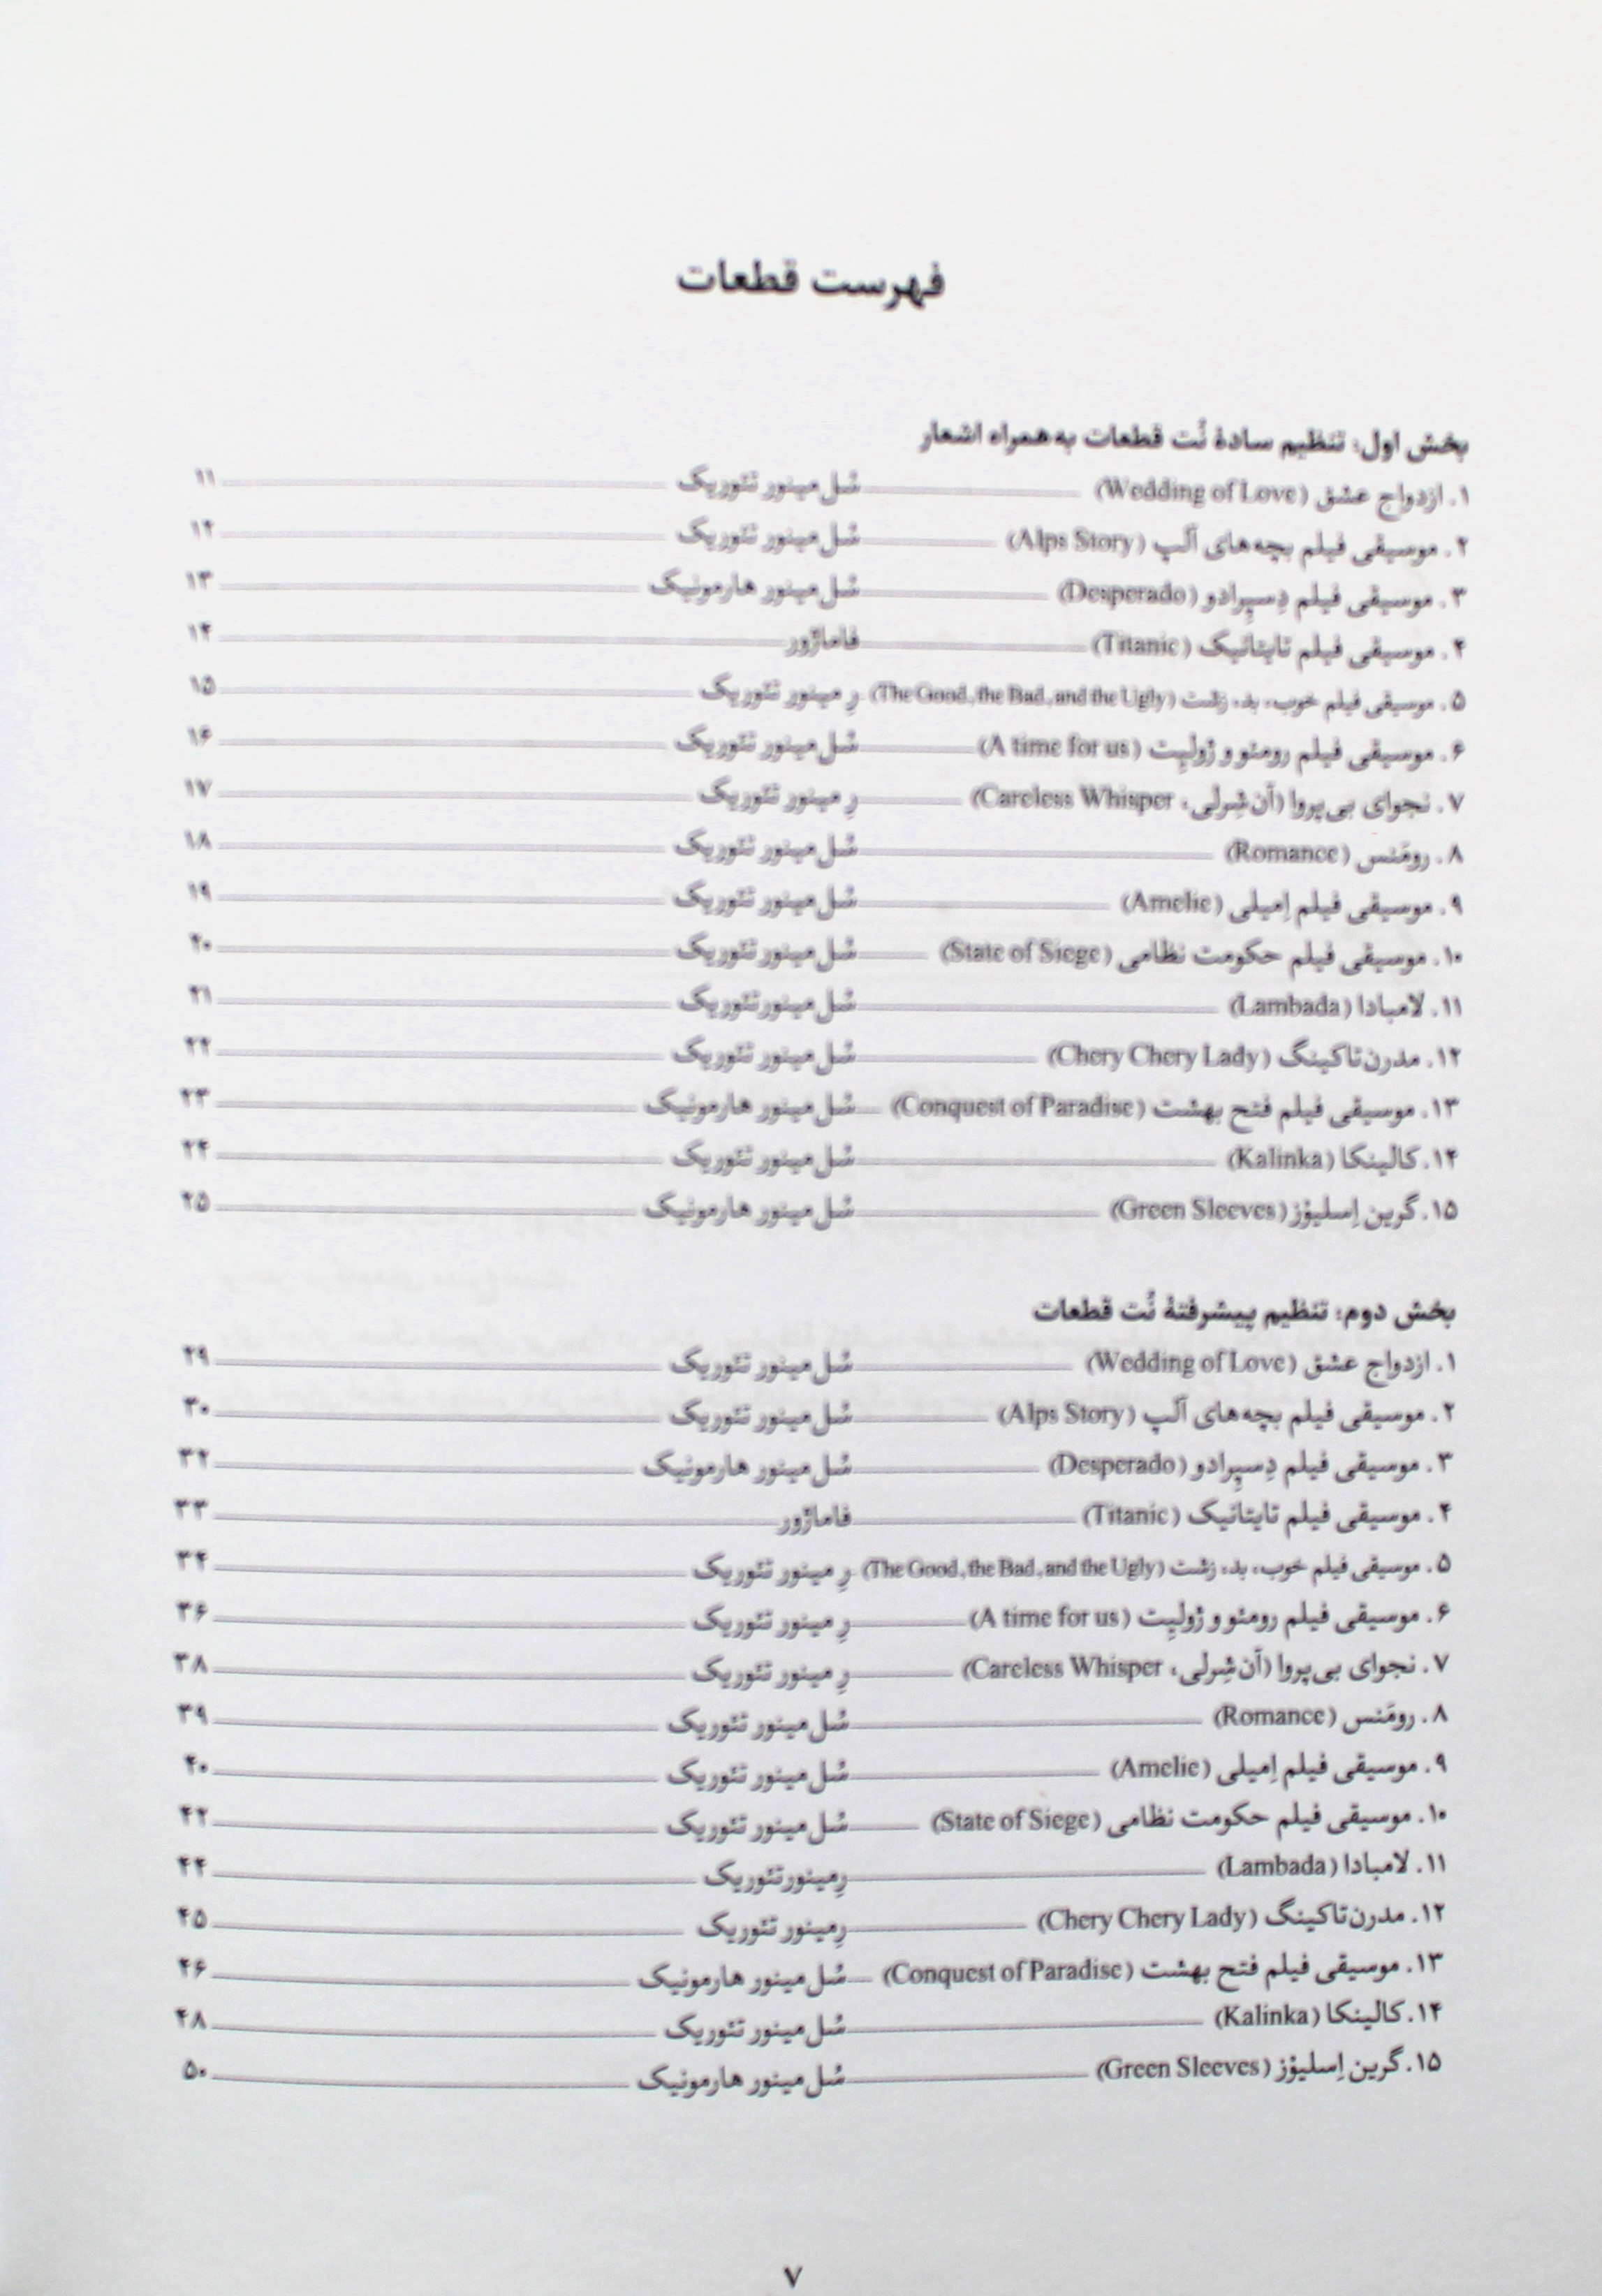 فهرست قطعات
بخش اول: تنظیم سادهٔ نُت قطعات به‌همراه اشعار
۱. ازدواج عشق (Wedding of Love) سُل‌مینور تئوریک ۱۱
۲. موسیقی فیلم بچه‌های آلپ (Alps Story) سُل‌مینور تئوریک ۱۲
۳. موسیقی فیلم دِسپِرادو (Desperado) سُل‌مینور هارمونیک ۱۳
۴. موسیقی فیلم تایتانیک (Titanic) فاماژور ۱۴
۵. موسیقی فیلم خوب، بد، زشت (The Good, the Bad, and the Ugly) رِ مینور تئوریک ۱۵
۶. موسیقی فیلم رومئو و ژولیِت (A time for us) سُل‌مینور تئوریک ۱۶
۷. نجوای بی‌پروا (آن‌شِرلی، Careless Whisper) رِ مینور تئوریک ۱۷
۸. رومَنس (Romance) سُل‌مینور تئوریک ۱۸
۹. موسیقی فیلم اِمیلی (Amelie) سُل‌مینور تئوریک ۱۹
۱۰. موسیقی فیلم حکومت نظامی (State of Siege) سُل‌مینور تئوریک ۲۰
۱۱. لامبادا (Lambada) سُل‌مینورتئوریک ۲۱
۱۲. مدرن‌تاکینگ (Chery Chery Lady) سُل‌مینور تئوریک ۲۲
۱۳. موسیقی فیلم فتح بهشت (Conquest of Paradise) سُل‌مینور هارمونیک ۲۳
۱۴. کالینکا (Kalinka) سُل‌مینور تئوریک ۲۴
۱۵. گرین‌اِسلیوْز (Green Sleeves) سُل‌مینور هارمونیک ۲۵
بخش دوم: تنظیم پیشرفتهٔ نُت قطعات
۱. ازدواج عشق (Wedding of Love) سُل‌مینور تئوریک ۲۹
۲. موسیقی فیلم بچه‌های آلپ (Alps Story) سُل‌مینور تئوریک ۳۰
۳. موسیقی فیلم دِسپِرادو (Desperado) سُل‌مینور هارمونیک ۳۲
۴. موسیقی فیلم تایتانیک (Titanic) فاماژور ۳۳
۵. موسیقی فیلم خوب، بد، زشت (The Good, the Bad, and the Ugly) رِ مینور تئوریک ۳۴
۶. موسیقی فیلم رومئو و ژولیِت (A time for us) رِ مینور تئوریک ۳۶
۷. نجوای بی‌پروا (آن‌شِرلی، Careless Whisper) رِ مینور تئوریک ۳۸
۸. رومَنس (Romance) سُل‌مینور تئوریک ۳۹
۹. موسیقی فیلم اِمیلی (Amelie) سُل‌مینور تئوریک ۴۰
۱۰. موسیقی فیلم حکومت نظامی (State of Siege) سُل‌مینور تئوریک ۴۲
۱۱. لامبادا (Lambada) رِمینورتئوریک ۴۴
۱۲. مدرن‌تاکینگ (Chery Chery Lady) رِمینور تئوریک ۴۵
۱۳. موسیقی فیلم فتح بهشت (Conquest of Paradise) سُل‌مینور هارمونیک ۴۶
۱۴. کالینکا (Kalinka) سُل‌مینور تئوریک ۴۸
۱۵. گرین‌اِسلیوْز (Green Sleeves) سُل‌مینور هارمونیک ۵۰
۷